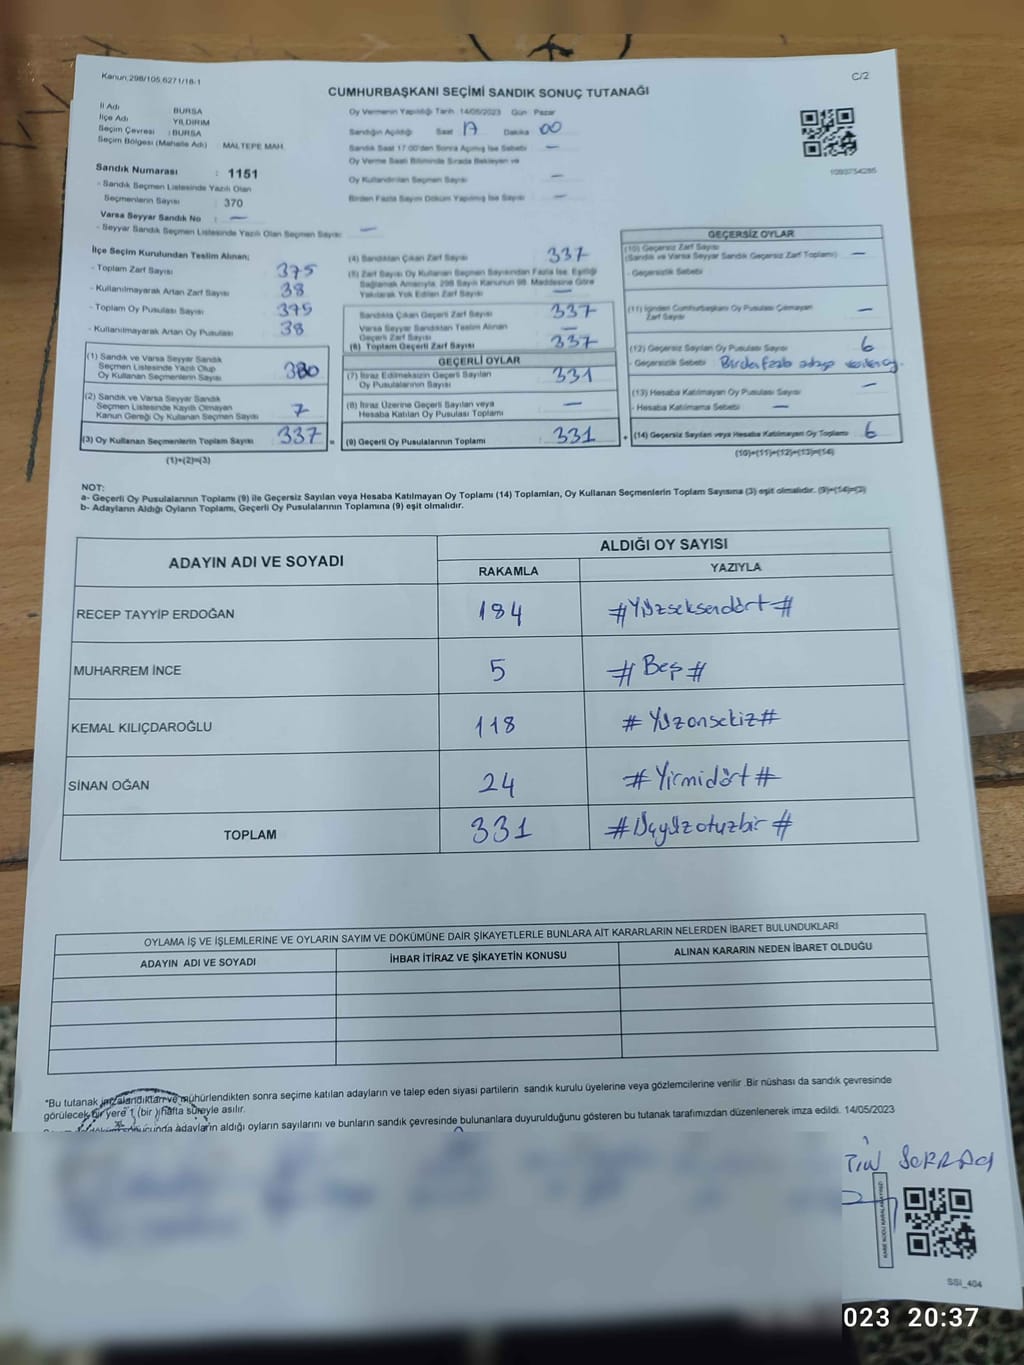 Kanun:298/105,6271/18-1
C/2
CUMHURBAŞKANI SEÇİMİ SANDIK SONUÇ TUTANAĞI
İl Adı BURSA
İlçe Adı YILDIRIM
Seçim Çevresi : BURSA
Seçim Bölgesi (Mahalle Adı) MALTEPE MAH.
Sandık Numarası : 1151
- Sandık Seçmen Listesinde Yazılı Olan
Seçmenlerin Sayısı 370
Varsa Seyyar Sandık No : —
- Seyyar Sandık Seçmen Listesinde Yazılı Olan Seçmen Sayısı: —
Oy Vermenin Yapıldığı Tarih: 14/05/2023 Gün: Pazar
Sandığın Açıldığı Saat 17 Dakika 00
Sandık Saat 17:00'den Sonra Açılmış İse Sebebi —
Oy Verme Saati Bitiminde Sırada Bekleyen ve
Oy Kullandırılan Seçmen Sayısı —
Birden Fazla Sayım Döküm Yapılmış İse Sayısı —
1093754285
İlçe Seçim Kurulundan Teslim Alınan;
- Toplam Zarf Sayısı 375
- Kullanılmayarak Artan Zarf Sayısı 38
- Toplam Oy Pusulası Sayısı 375
- Kullanılmayarak Artan Oy Pusulası 38
(1) Sandık ve Varsa Seyyar Sandık
Seçmen Listesinde Yazılı Olup
Oy Kullanan Seçmenlerin Sayısı 330
(2) Sandık ve Varsa Seyyar Sandık
Seçmen Listesinde Kayıtlı Olmayan
Kanun Gereği Oy Kullanan Seçmen Sayısı 7
(3) Oy Kullanan Seçmenlerin Toplam Sayısı 337 =
(1)+(2)=(3)
(4) Sandıktan Çıkan Zarf Sayısı 337
(5) Zarf Sayısı Oy Kullanan Seçmen Sayısından Fazla İse, Eşitliği
Sağlamak Amacıyla, 298 Sayılı Kanunun 98. Maddesine Göre
Yakılarak Yok Edilen Zarf Sayısı —
Sandıkta Çıkan Geçerli Zarf Sayısı 337
Varsa Seyyar Sandıktan Teslim Alınan
Geçerli Zarf Sayısı —
(6) Toplam Geçerli Zarf Sayısı 337
GEÇERLİ OYLAR
(7) İtiraz Edilmeksizin Geçerli Sayılan
Oy Pusulalarının Sayısı 331
(8) İtiraz Üzerine Geçerli Sayılan veya
Hesaba Katılan Oy Pusulası Toplamı —
(9) Geçerli Oy Pusulalarının Toplamı 331 +
GEÇERSİZ OYLAR
(10) Geçersiz Zarf Sayısı
(Sandık ve Varsa Seyyar Sandık Geçersiz Zarf Toplamı) —
- Geçersizlik Sebebi
(11) İçinden Cumhurbaşkanı Oy Pusulası Çıkmayan
Zarf Sayısı —
(12) Geçersiz Sayılan Oy Pusulası Sayısı 6
- Geçersizlik Sebebi Birden fazla adaya verilen oy.
(13) Hesaba Katılmayan Oy Pusulası Sayısı —
- Hesaba Katılmama Sebebi —
(14) Geçersiz Sayılan veya Hesaba Katılmayan Oy Toplamı 6
(10)+(11)+(12)+(13)=(14)
NOT:
a- Geçerli Oy Pusulalarının Toplamı (9) ile Geçersiz Sayılan veya Hesaba Katılmayan Oy Toplamı (14) Toplamları, Oy Kullanan Seçmenlerin Toplam Sayısına (3) eşit olmalıdır. (9)+(14)=(3)
b- Adayların Aldığı Oyların Toplamı, Geçerli Oy Pusulalarının Toplamına (9) eşit olmalıdır.
ADAYIN ADI VE SOYADI
ALDIĞI OY SAYISI
RAKAMLA YAZIYLA
RECEP TAYYİP ERDOĞAN 184 #Yüzseksendört#
MUHARREM İNCE 5 #Beş#
KEMAL KILIÇDAROĞLU 118 #Yüzonsekiz#
SİNAN OĞAN 24 #Yirmidört#
TOPLAM 331 #Üçyüzotuzbir#
OYLAMA İŞ VE İŞLEMLERİNE VE OYLARIN SAYIM VE DÖKÜMÜNE DAİR ŞİKAYETLERLE BUNLARA AİT KARARLARIN NELERDEN İBARET BULUNDUKLARI
ADAYIN ADI VE SOYADI İHBAR İTİRAZ VE ŞİKAYETİN KONUSU ALINAN KARARIN NEDEN İBARET OLDUĞU
*Bu tutanak imzalandıktan ve mühürlendikten sonra seçime katılan adayların ve talep eden siyasi partilerin sandık kurulu üyelerine veya gözlemcilerine verilir .Bir nüshası da sandık çevresinde
görülecek bir yere 1 (bir ) hafta süreyle asılır.
adayların aldığı oyların sayılarını ve bunların sandık çevresinde bulunanlara duyurulduğunu gösteren bu tutanak tarafımızdan düzenlenerek imza edildi. 14/05/2023
SSI_404
023 20:37